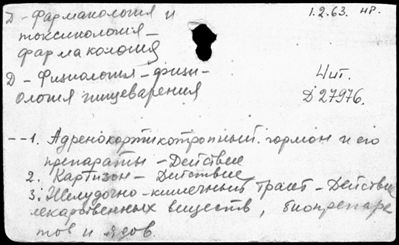 Д - Фармакология и
токсикология -
фармакология
1.2.63. нр.
Д - Физиология - физи-
ология пищеварения
Чит.
Д 27976.
- - 1. Адренокортикотропный гормон и его
препараты - Действие
2. Картизон - Действие
3. Желудочно-кишечный тракт - Действие
лекарственных веществ, биопрепара-
тов и ядов